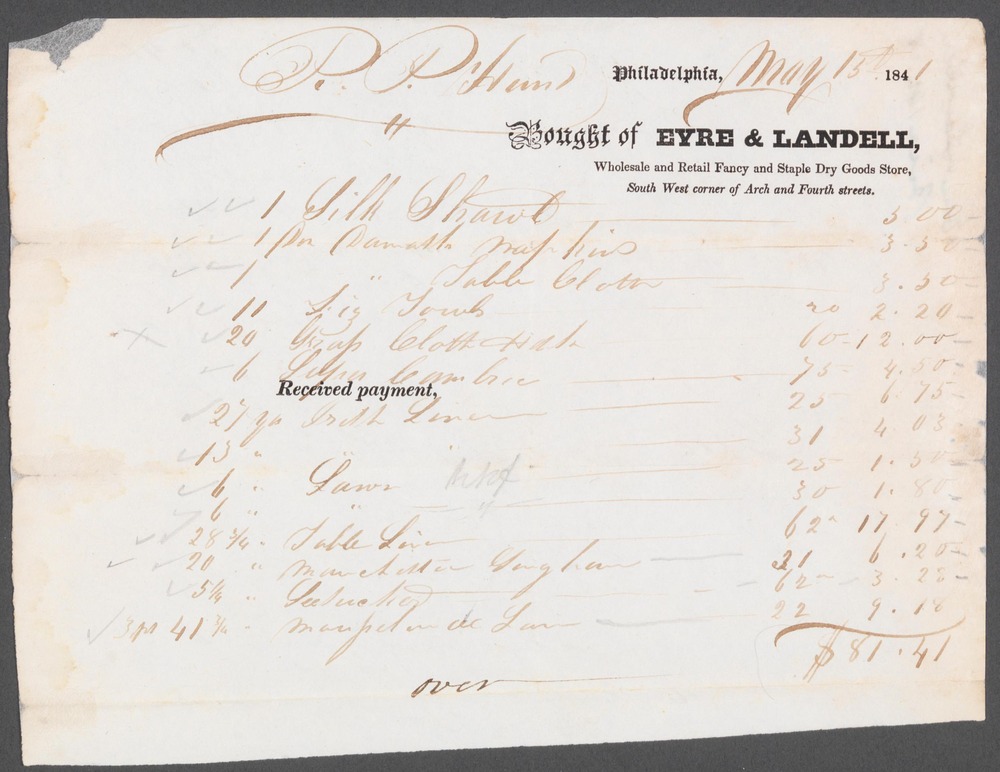 R. P. Hunt Philadelphia, May 15th 1841
" Bought of EYRE & LANDELL,
Wholesale and Retail Fancy and Staple Dry Goods Store,
South West corner of Arch and Fourth streets.
1 Silk Shawl 5.00
1 Doz Damask Napkins 3.50
1 " Table Cloth 3.50
11 Towels 20 2.20
20 Grass Cloth Hdk 60 12.00
6 Cambric 75 4.50
Received payment,
27 yds Irish Linen 25 6.75
13 " " 31 4.03
6 " Lawn 25 1.50
6 " " " 30 1.80
28 3/4 " Table Linen 62 17.97
20 " Manchester Gingham 31 6.20
5 1/4 " 62 3.28
3 ps 41 3/4 " de Laine 22 9.18
$81.41
over